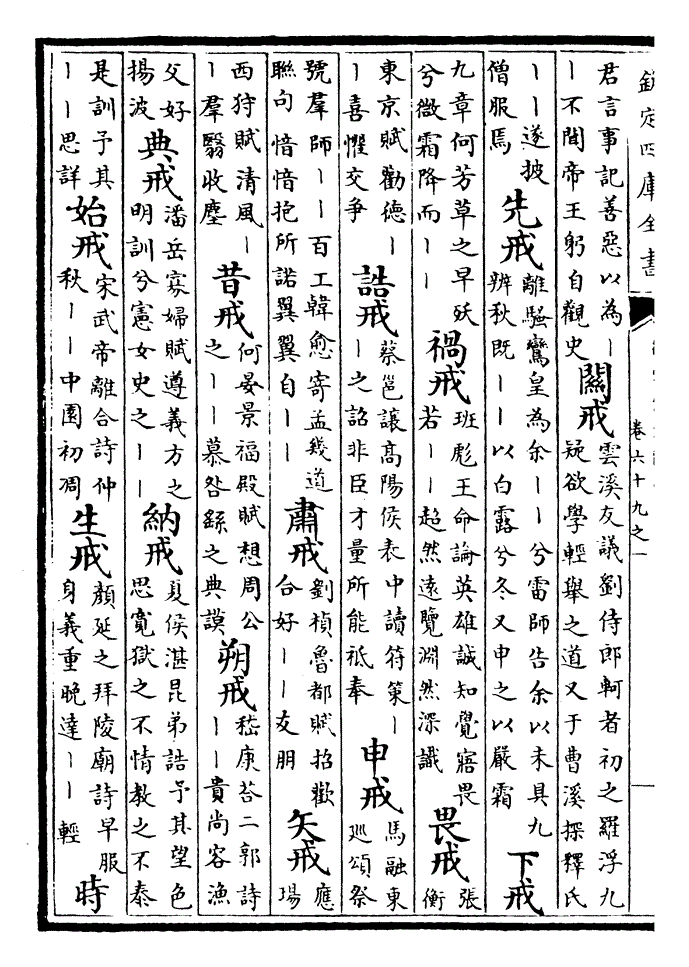 欽定四庫全書
卷六十九之一
君言事記善惡以為丨
丨不聞帝王躬自觀史
闗戒
雲溪友議劉侍郎軻者初之羅浮九
疑欲學輕舉之道又于曹溪探釋氏
丨丨遂披
僧服焉
先戒
離騷鸞皇為余丨丨兮雷師告余以未具九
辨秋既丨丨以白露兮冬又申之以嚴霜
下戒
九章何芳草之早殀
兮微霜降而丨丨
禍戒
班彪王命論英雄誠知覺寤畏
若丨丨超然遠覽淵然深識
畏戒
張
衡
東京賦勸德丨
丨喜懼交爭
誥戒
蔡邕讓高陽侯表中讀符策丨
丨之詔非臣才量所能祇奉
申戒
馬融東
巡頌祭
號羣師丨丨百工韓愈寄孟幾道
聯句愔愔抱所諾翼翼自丨丨
肅戒
劉楨魯都賦招歡
合好丨丨友朋
矢戒
應
瑒
西狩賦清風丨
丨羣翳收塵
昔戒
何晏景福殿賦想周公
之丨丨慕咎繇之典謨
朔戒
嵇康荅二郭詩
丨丨貴尚容漁
父好
揚波
典戒
潘岳寡婦賦遵義方之
明訓兮憲女史之丨丨
納戒
夏侯湛昆弟誥予其望色
思寬獄之不情教之不泰
是訓予其
丨丨思詳
始戒
宋武帝離合詩仲
秋丨丨中園初凋
生戒
顏延之拜陵廟詩早服
身義重晚達丨丨輕
時